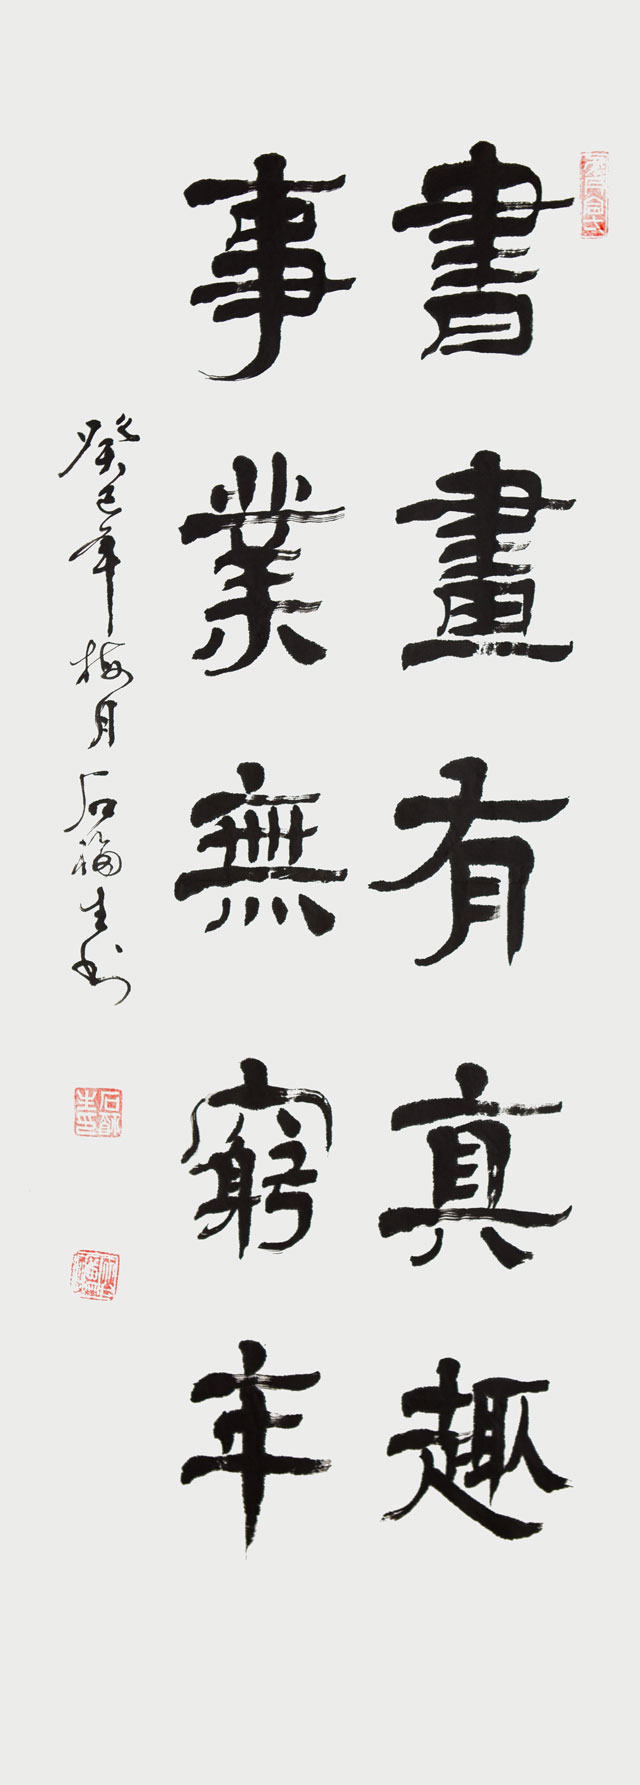 書畫有真趣
事業無窮年
癸巳年梅月石福生书
石福生印